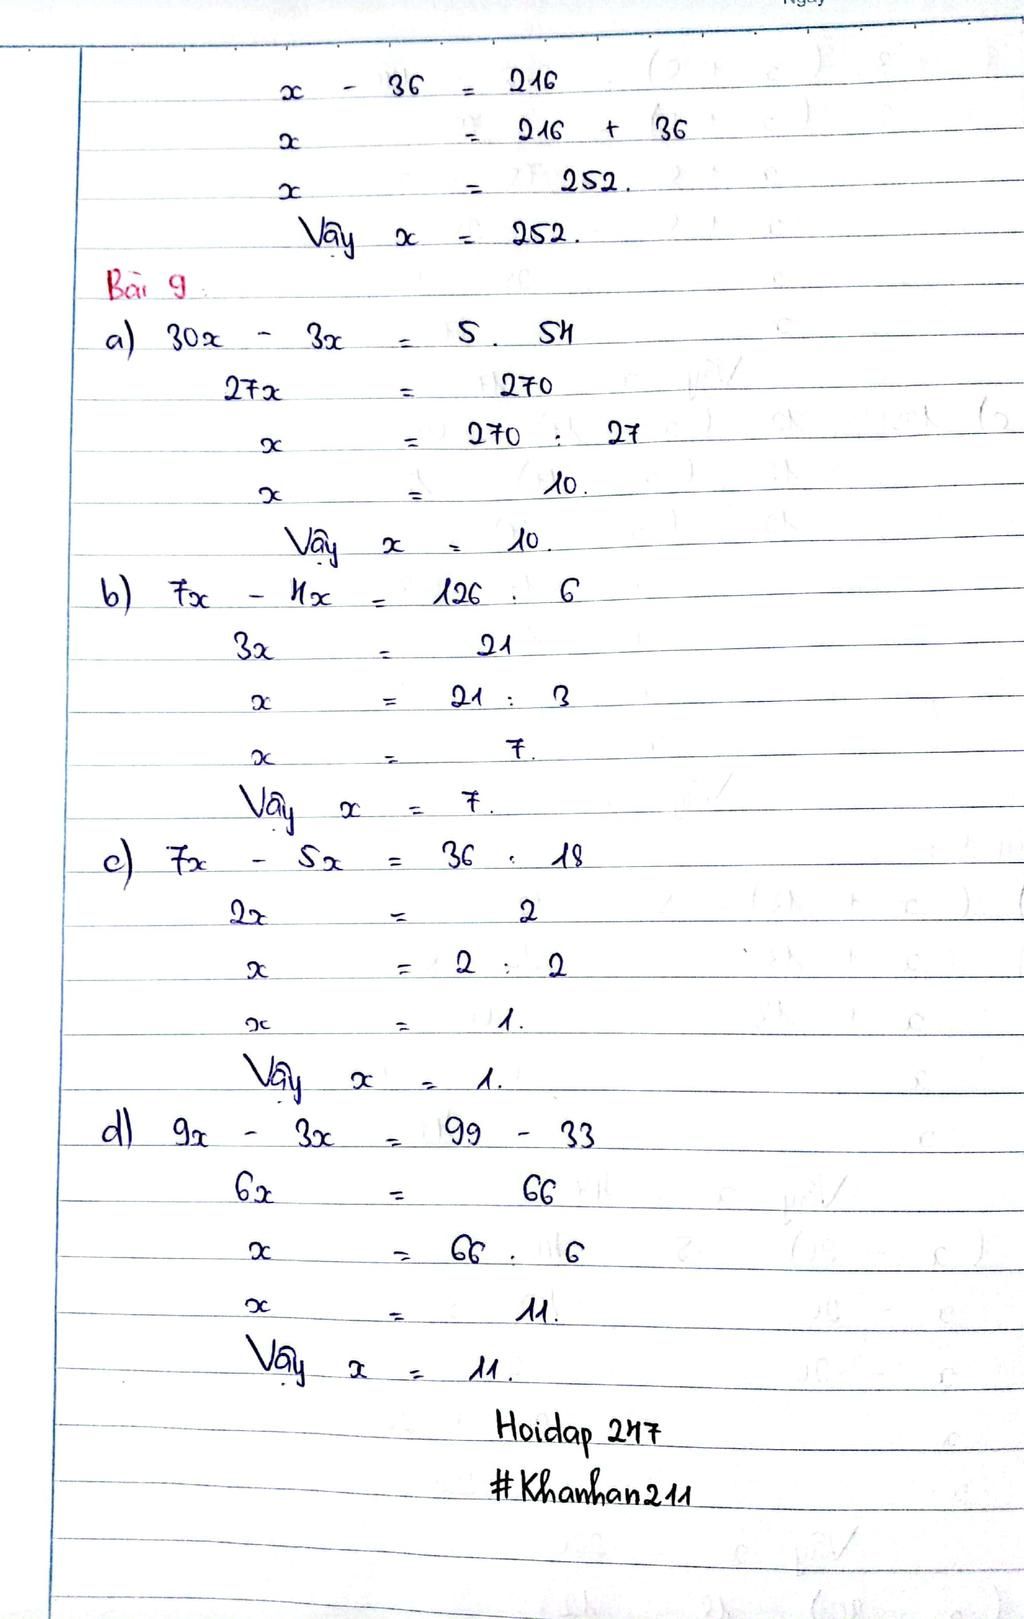 Ngày
x - 36 = 216
x = 216 + 36
x = 252.
Vậy x = 252.
Bài 9:
a) 30x - 3x = 5 . 54
27x = 270
x = 270 : 27
x = 10.
Vậy x = 10.
b) 7x - 4x = 126 : 6
3x = 21
x = 21 : 3
x = 7.
Vậy x = 7.
c) 7x - 5x = 36 : 18
2x = 2
x = 2 : 2
x = 1.
Vậy x = 1.
d) 9x - 3x = 99 - 33
6x = 66
x = 66 : 6
x = 11.
Vậy x = 11.
Hoidap 247
#Khanhan211